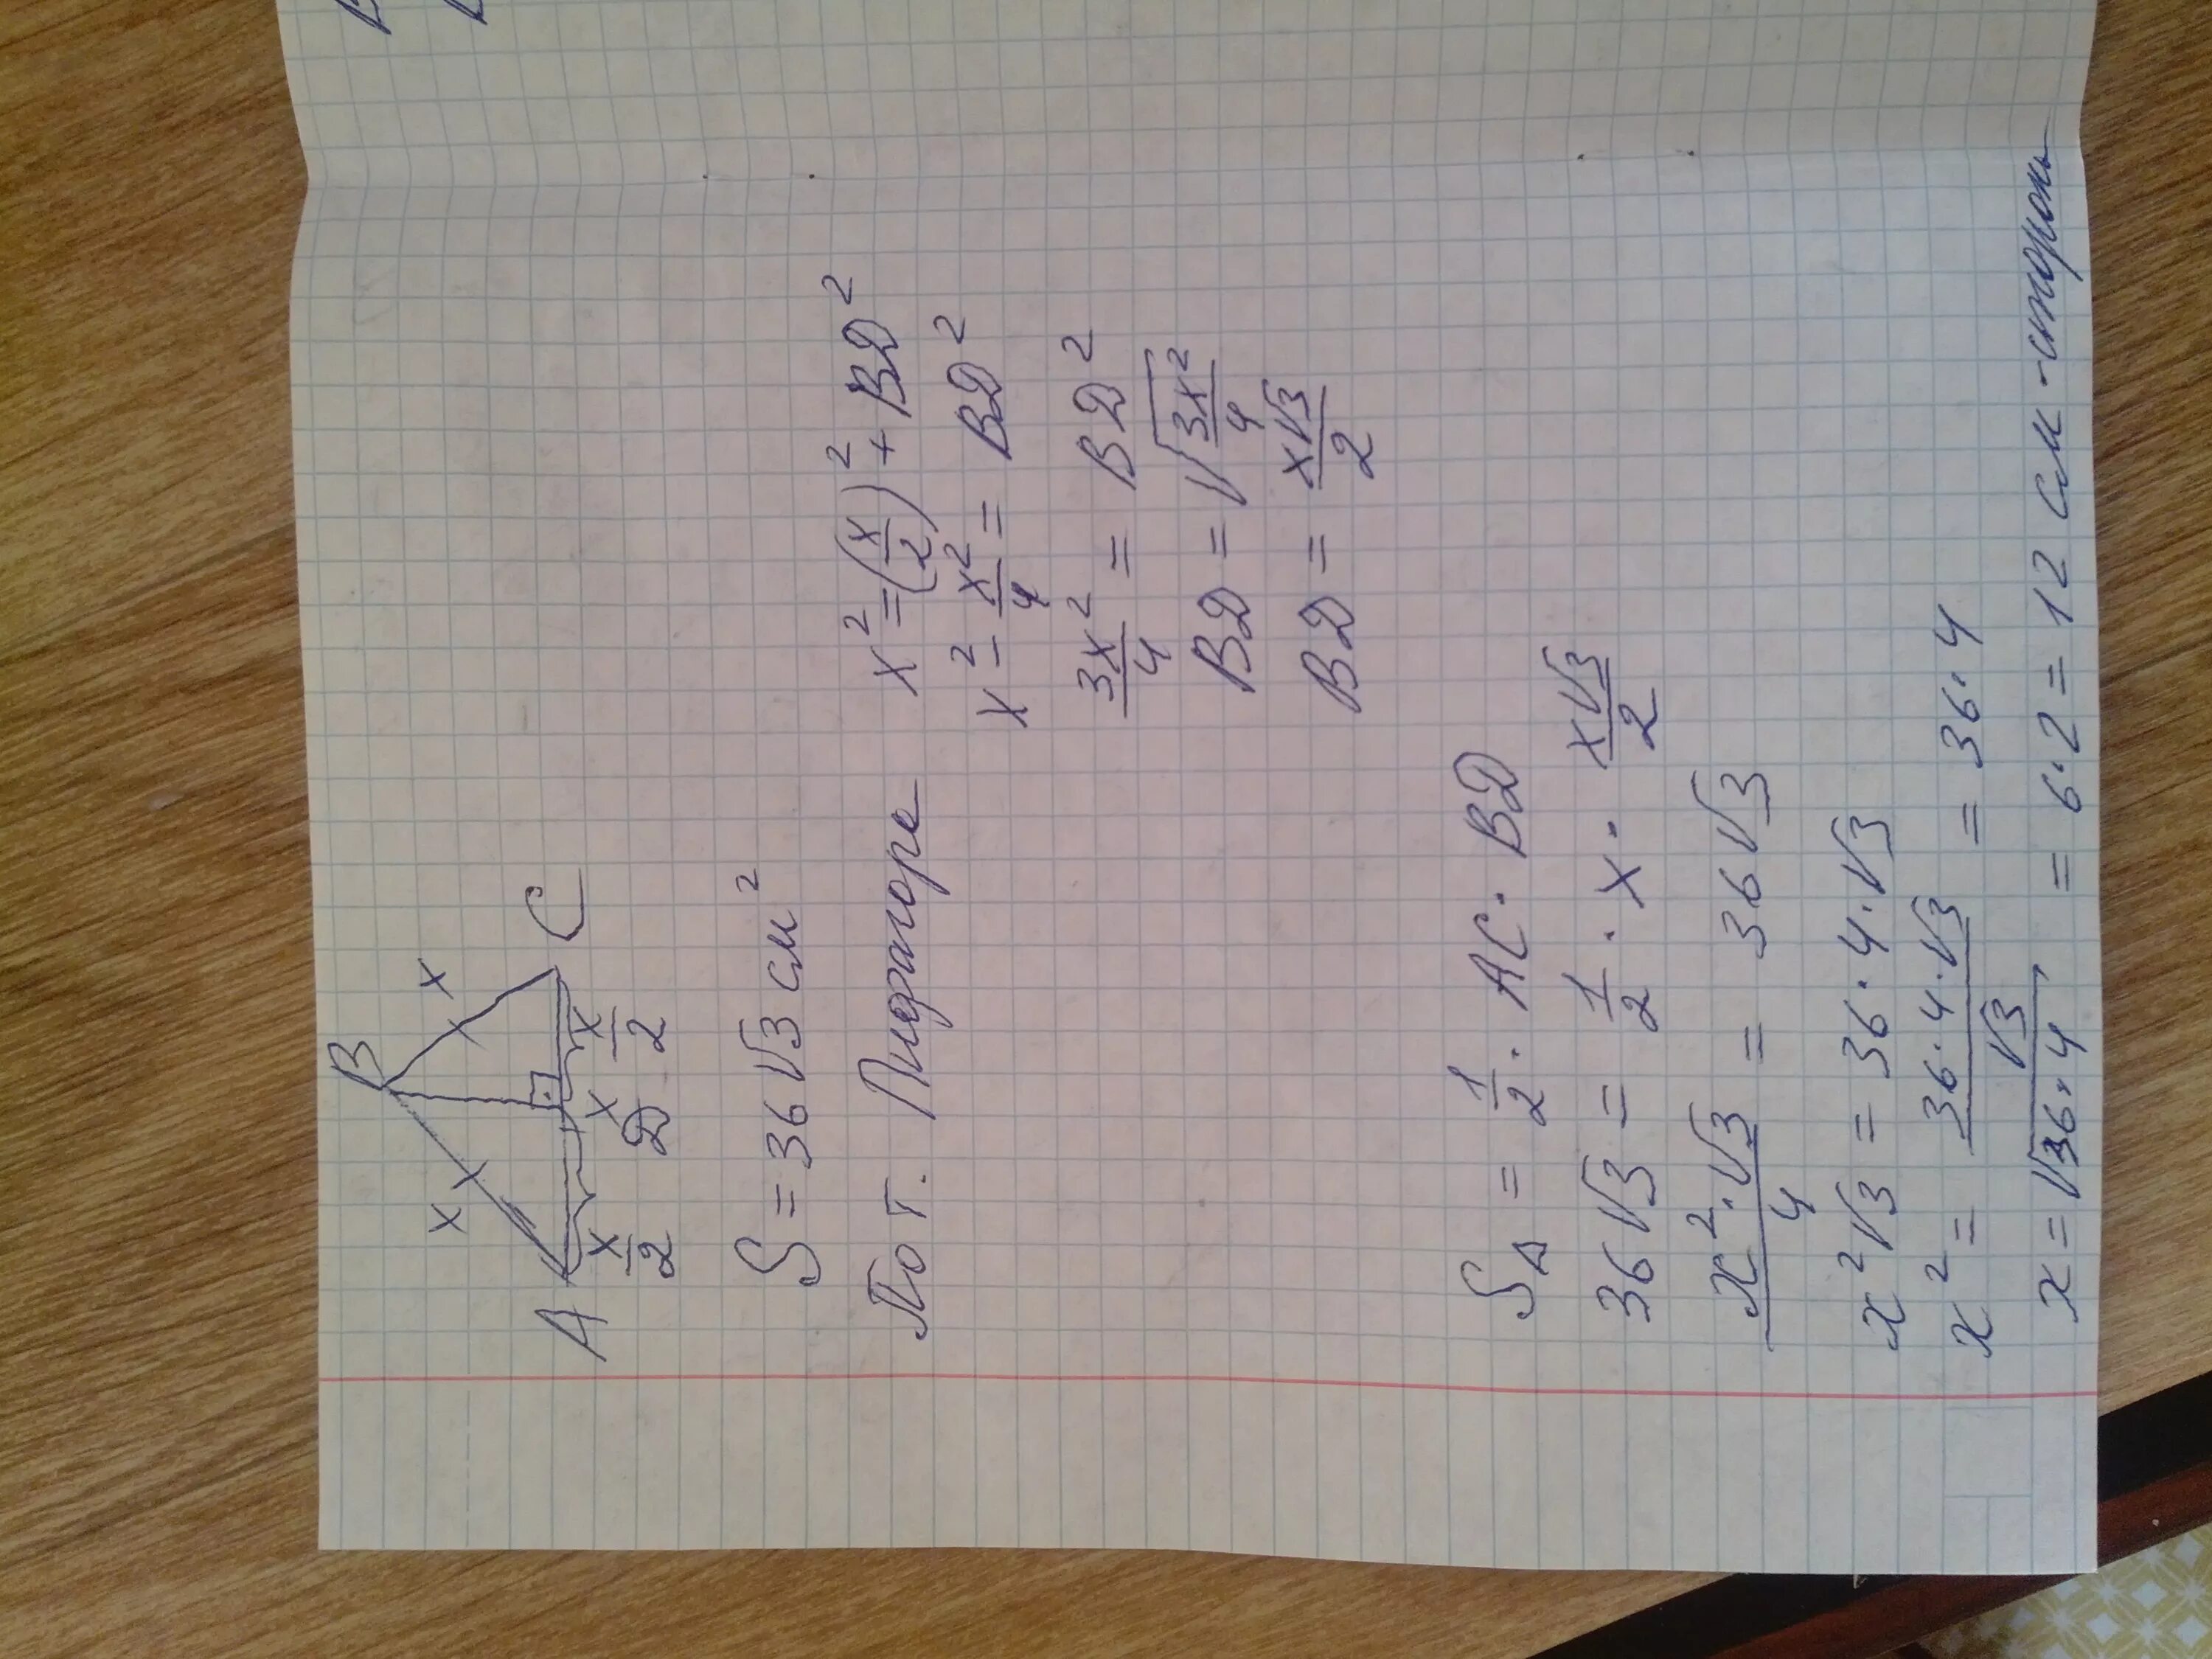 B
x x
A C
x/2 D x/2
x
S = 36√3 см²
По т. Пифагора x² = (x/2)² + BD²
x² - x²/4 = BD²
3x²/4 = BD²
BD = √(3x²/4)
BD = x√3/2
S△ = 1/2 · AC · BD
36√3 = 1/2 · x · x√3/2
x²·√3/4 = 36√3
x²√3 = 36·4·√3
x² = 36·4·√3/√3 = 36·4
x = √36·4 = 6·2 = 12 см - сторона